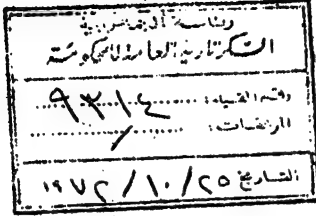 رئاسة الجمهورية
السكرتارية العامة للحكومة
رقم القيد: ٩٣١٤
المرفقات: /
التاريخ ٢٥ / ١٠ / ١٩٧٢